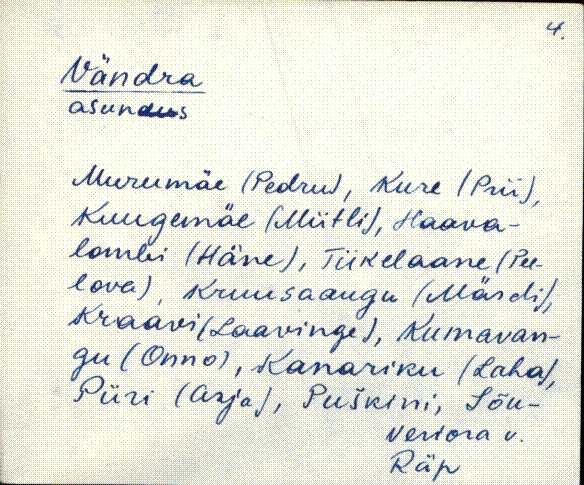 4.
Vändra
asundus
Murumäe (Pedru), Kure (Prii),
Kuugemäe (Miitli), Haava-
lombi (Häne), Tiikelaane (Pee-
love), Kruusaaugu (Märdi),
Kraavi (Laavinge), Kumavan-
gu (Onno), Kanariku (Laha),
Piiri (Asja), Puškini, Sõu-
v.
Räp